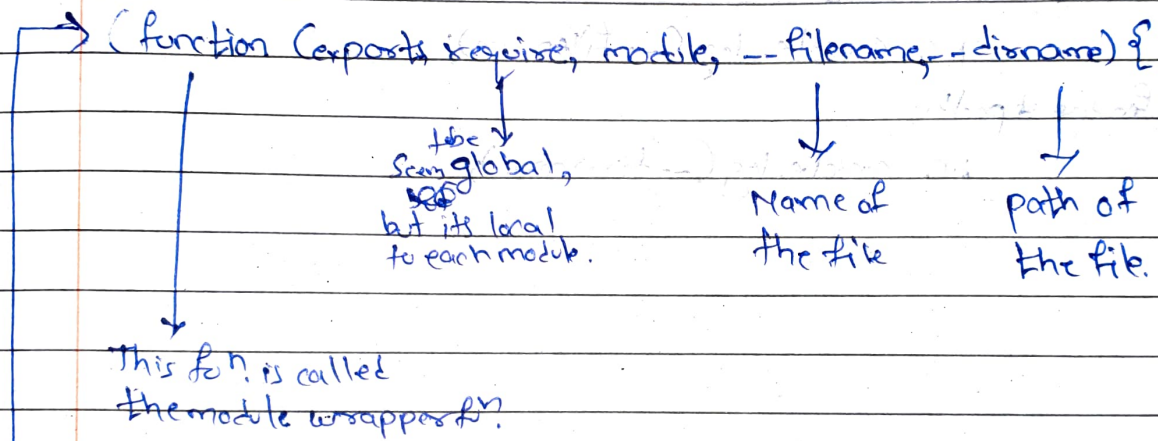 (function (exports, require, module, __filename, __dirname) {
to be
Seem global,
but its local
to each module.
Name of
the file
path of
the file.
This fcn. is called
the module wrapper fn.